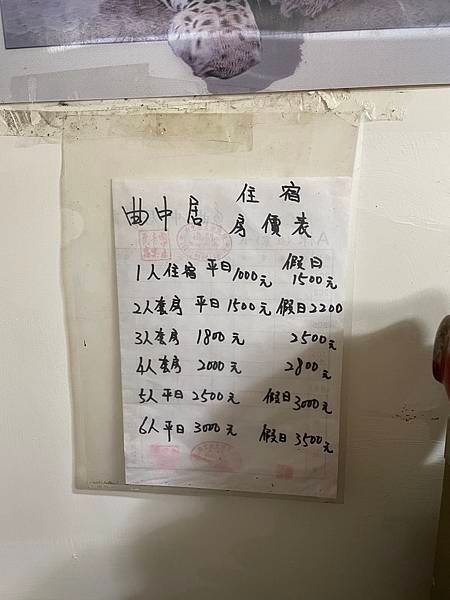 曲中居 住宿
房價表
1人住宿 平日1000元 假日1500元
2人套房 平日1500元 假日2200
3人套房 1800元 2500元
4人套房 2000元 2800元
5人平日 2500元 假日3000元
6人平日 3000元 假日3500元